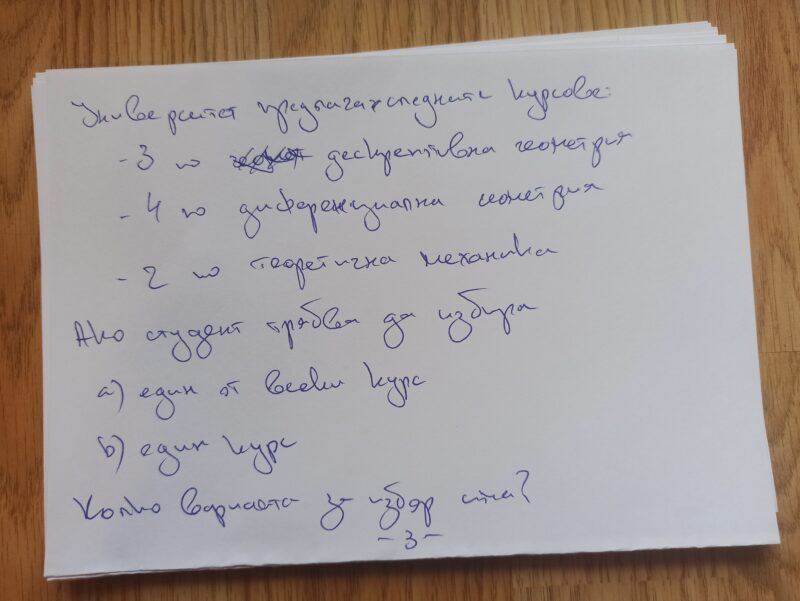 Университет предлагах следните курсове:
- 3 по дескрептивна геометрия
- 4 по диференциална геометрия
- 2 по теоретична механика
Ако студент трябва да избира
а) един от всеки курс
b) един курс
Колко варианта за избор има?
- 3 -